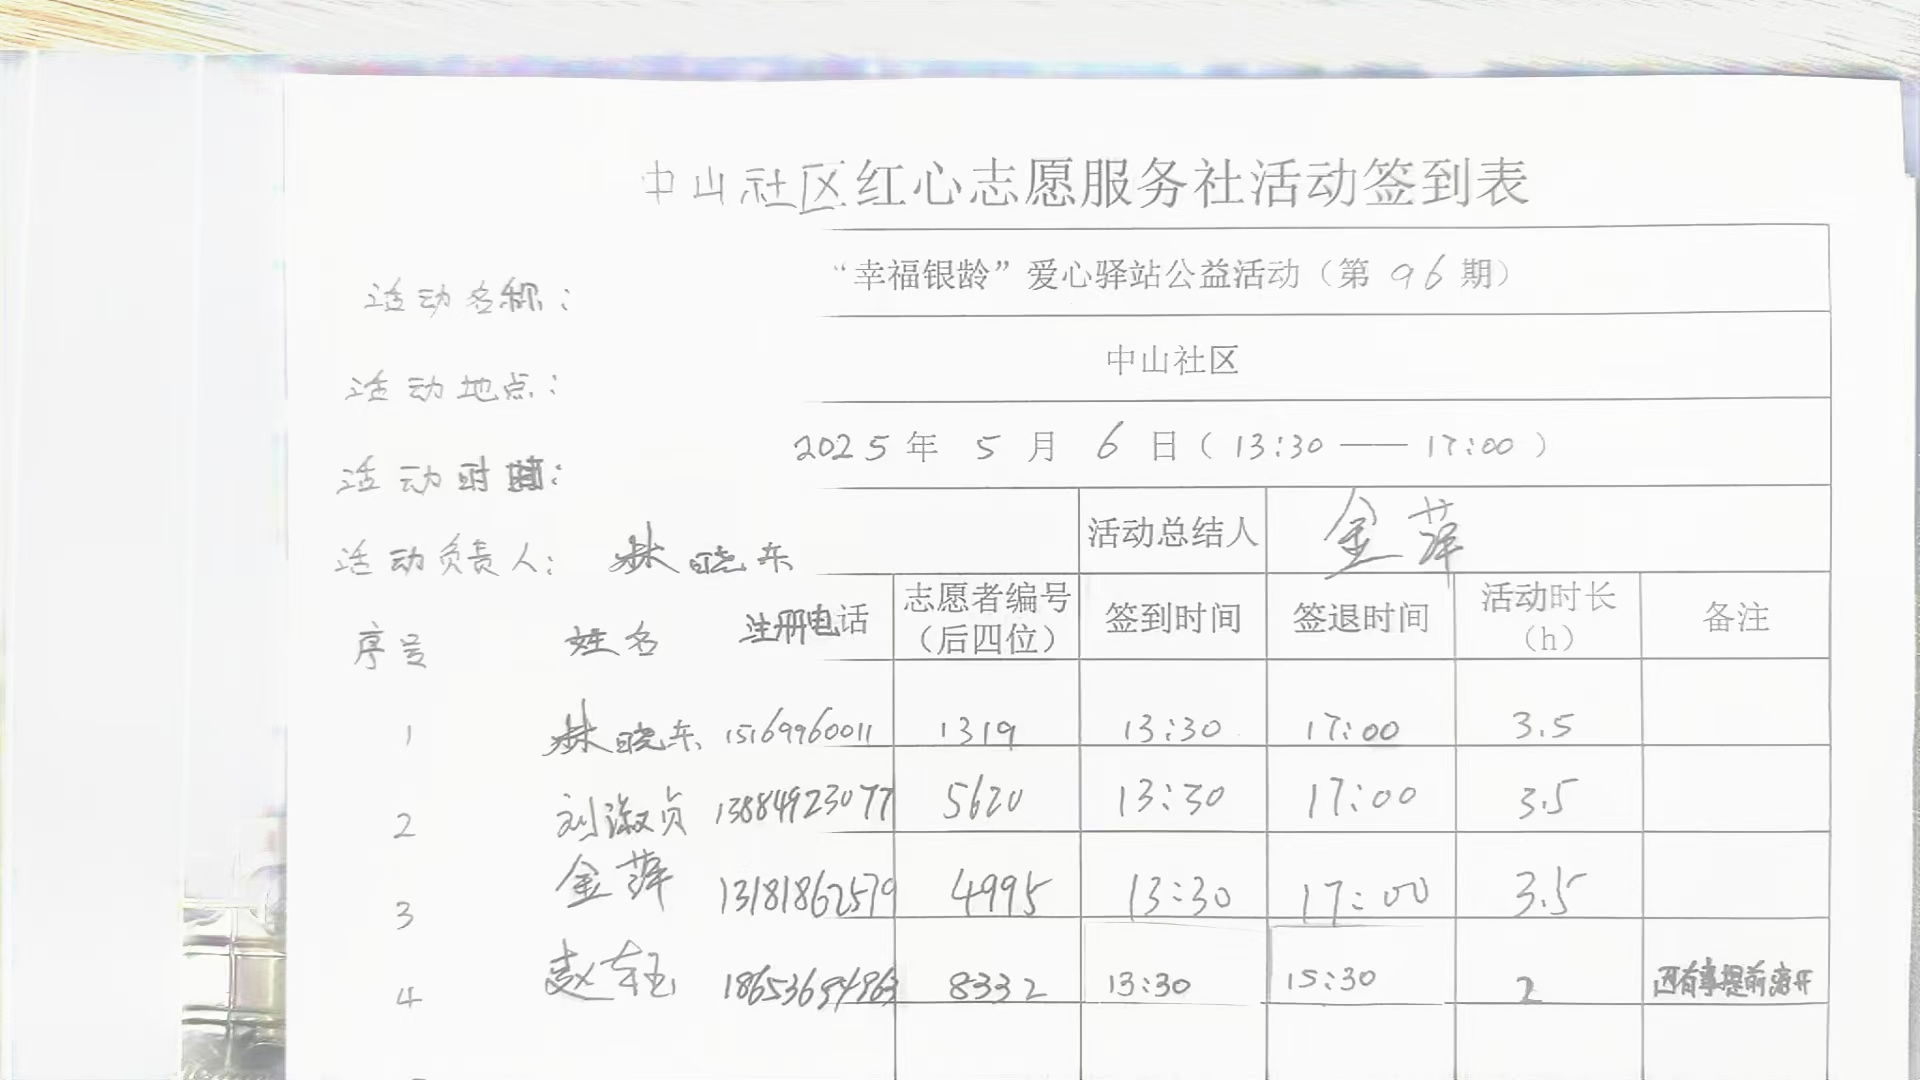 中山社区红心志愿服务社活动签到表
活动名称： “幸福银龄”爱心驿站公益活动（第 96 期）
活动地点： 中山社区
活动时间： 2025 年 5 月 6 日（ 13:30 —— 17:00 ）
活动负责人: 林晓东 活动总结人 金萍
序号 姓名 注册电话 志愿者编号（后四位） 签到时间 签退时间 活动时长（h） 备注
1 林晓东 15169960011 1319 13:30 17:00 3.5
2 刘淑贞 13884923077 5620 13:30 17:00 3.5
3 金萍 13181862579 4995 13:30 17:00 3.5
4 赵 8332 13:30 15:30 2 因有事提前离开